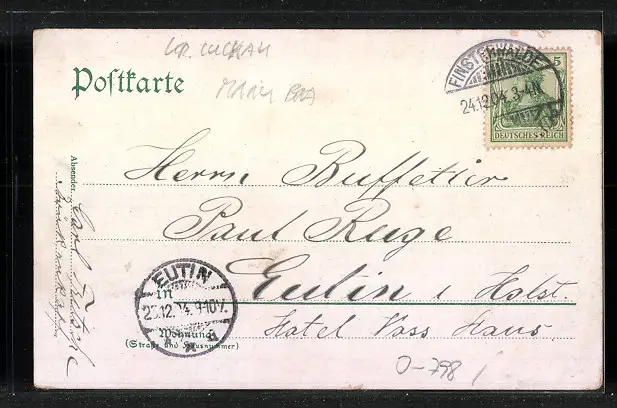 Kr. Luckau
Postkarte
FINSTERWALDE
24.12.04. 3-4N.
5
DEUTSCHES REICH
Herrn Buffetier
Paul Ruge
Eutin i Holst.
in
EUTIN
25.12. 4. 9-10V.
Hotel Voss Haus
Wohnung
(Straße und Hausnummer)
O-798
Absender.
Carl